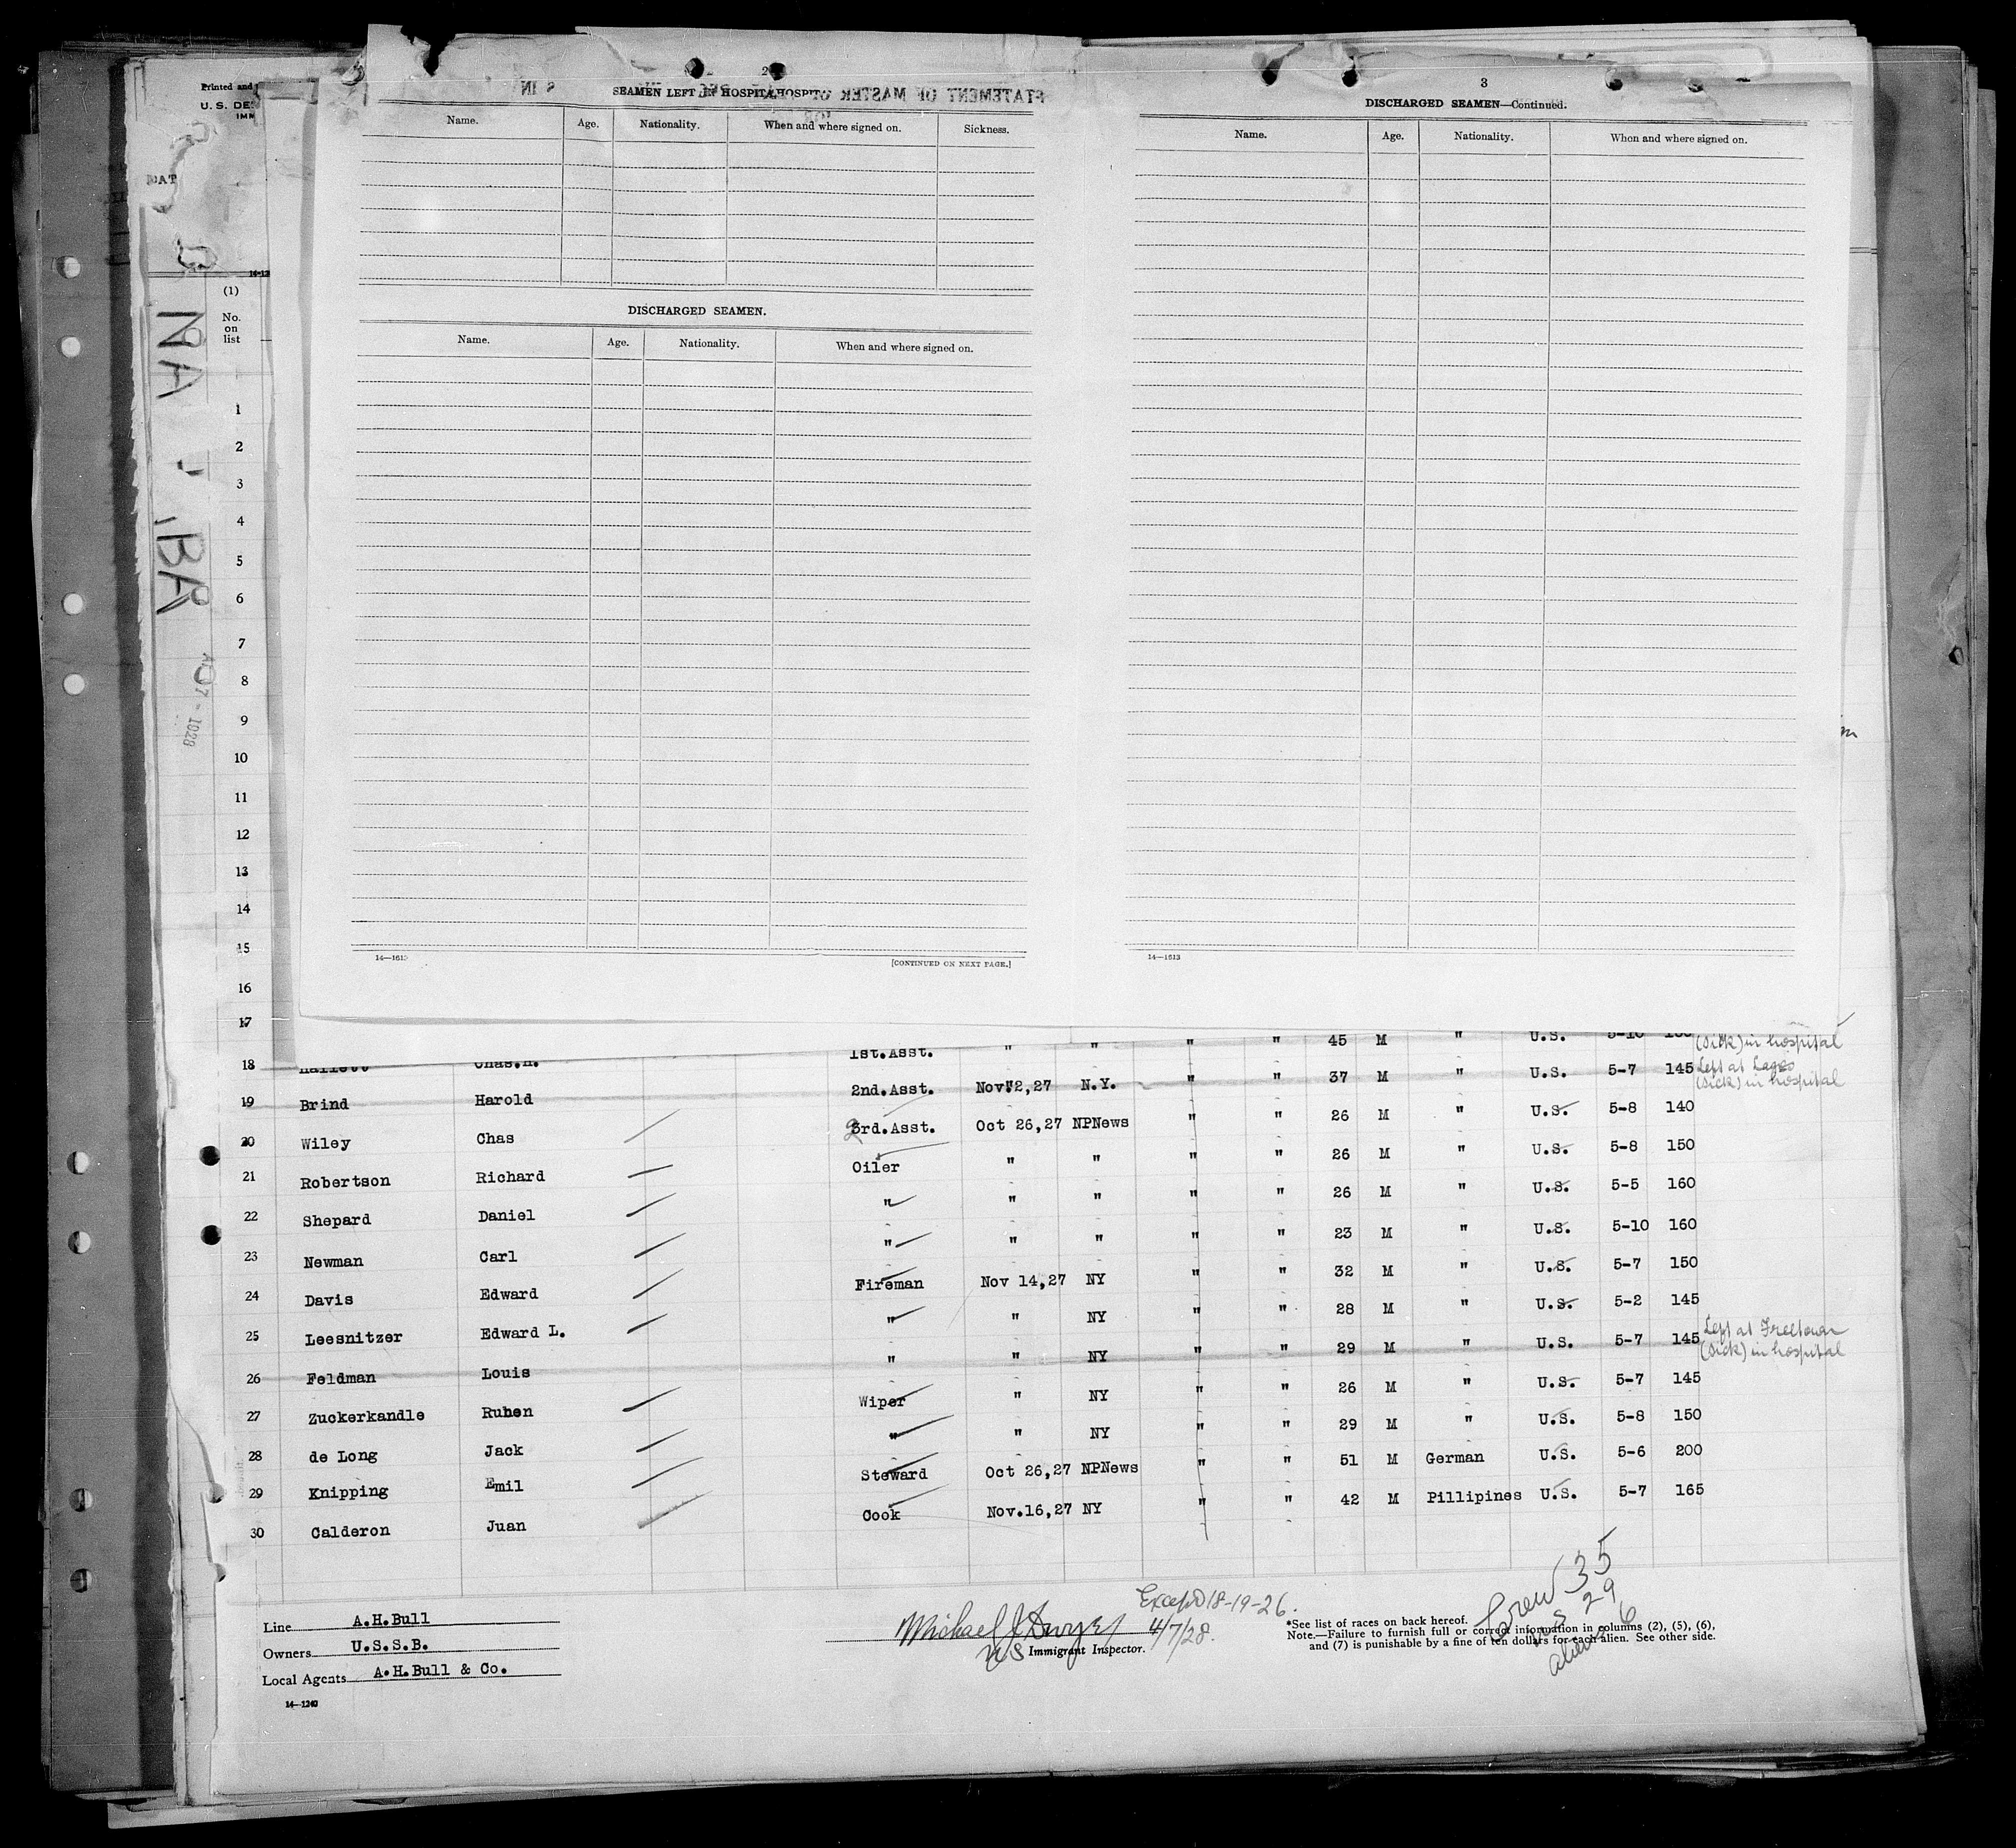 Printed and
U. S. DE
IMM
(1)
No.
on
list
1
2
3
4
5
6
7
8
9
10
11
12
13
14
15
16
17
2
SEAMEN LEFT IN HOSPITAL
Name. Age. Nationality. When and where signed on. Sickness.
DISCHARGED SEAMEN.
Name. Age. Nationality. When and where signed on.
[CONTINUED ON NEXT PAGE.]
3
DISCHARGED SEAMEN—Continued.
Name. Age. Nationality. When and where signed on.
14—1613
1st.Asst. " " " " 45 M " U.S. 5-10 (Sick) in hospital
18 Hallett Chas.H.
19 Brind Harold 2nd.Asst. Nov 2,27 N.Y. " " 37 M " U.S. 5-7 145 Left at Lagos (Sick) in hospital
20 Wiley Chas 3rd.Asst. Oct 26,27 NPNews " " 26 M " U.S. 5-8 140
21 Robertson Richard Oiler " " " " 26 M " U.S. 5-8 150
22 Shepard Daniel " " " " " 26 M " U.S. 5-5 160
23 Newman Carl " " " " " 23 M " U.S. 5-10 160
24 Davis Edward Fireman Nov 14,27 NY " " 32 M " U.S. 5-7 150
25 Leesnitzer Edward L. " " NY " " 28 M " U.S. 5-2 145
26 Feldman Louis " " NY " " 29 M " U.S. 5-7 145 Left at Freetown (Sick) in hospital
27 Zuckerkandle Ruben Wiper " NY " " 26 M " U.S. 5-7 145
28 de Long Jack " " NY " " 29 M " U.S. 5-8 150
29 Knipping Emil Steward Oct 26,27 NPNews " " 51 M German U.S. 5-6 200
30 Calderon Juan Cook Nov.16,27 NY " " 42 M Pillipines U.S. 5-7 165
Crew 35
US 29
aliens 6
Except 18-19-26.
Line A.H.Bull
Owners U.S.S.B.
Local Agents A.H.Bull & Co.
14—1240
Michael J Dwyer 4/7/28.
US Immigrant Inspector.
*See list of races on back hereof.
Note.—Failure to furnish full or correct information in columns (2), (5), (6),
and (7) is punishable by a fine of ten dollars for each alien. See other side.